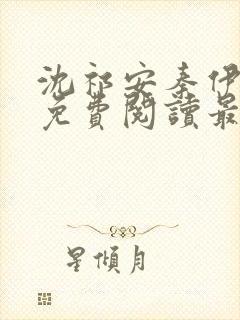 沈祁安秦伊
免費閱讀最
星傾月